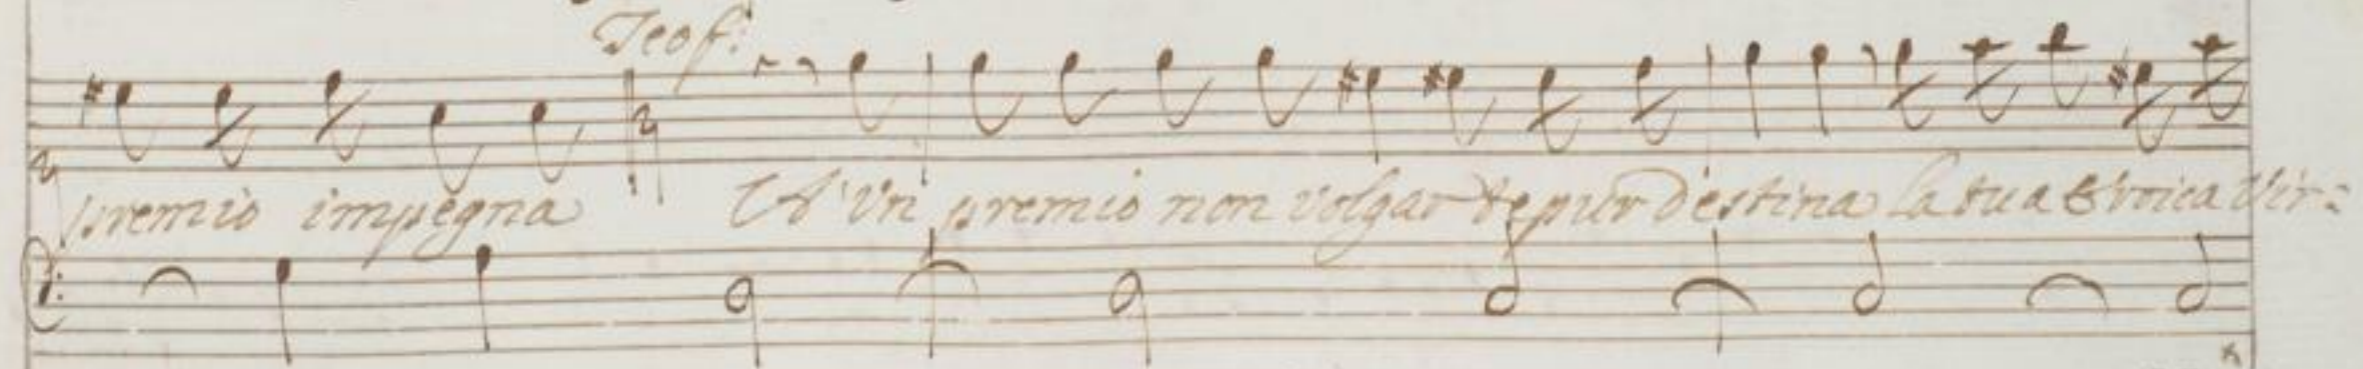 Teof:
premio impegna A' Un premio non volgar te pur destina la tua Eroica Vir=